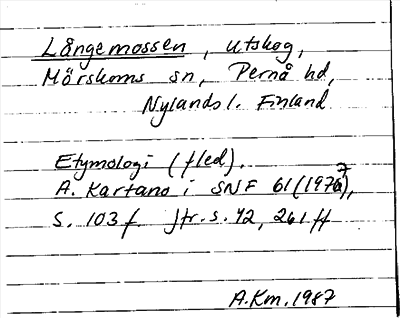 Långemossen, utskog,
Mörskoms sn, Pernå hd,
Nylands l. Finland
Etymologi (fled).
A. Kartano i SNF 61 (1977),
s. 103 f. Jfr. s. 42, 261 ff
A.Km. 1987